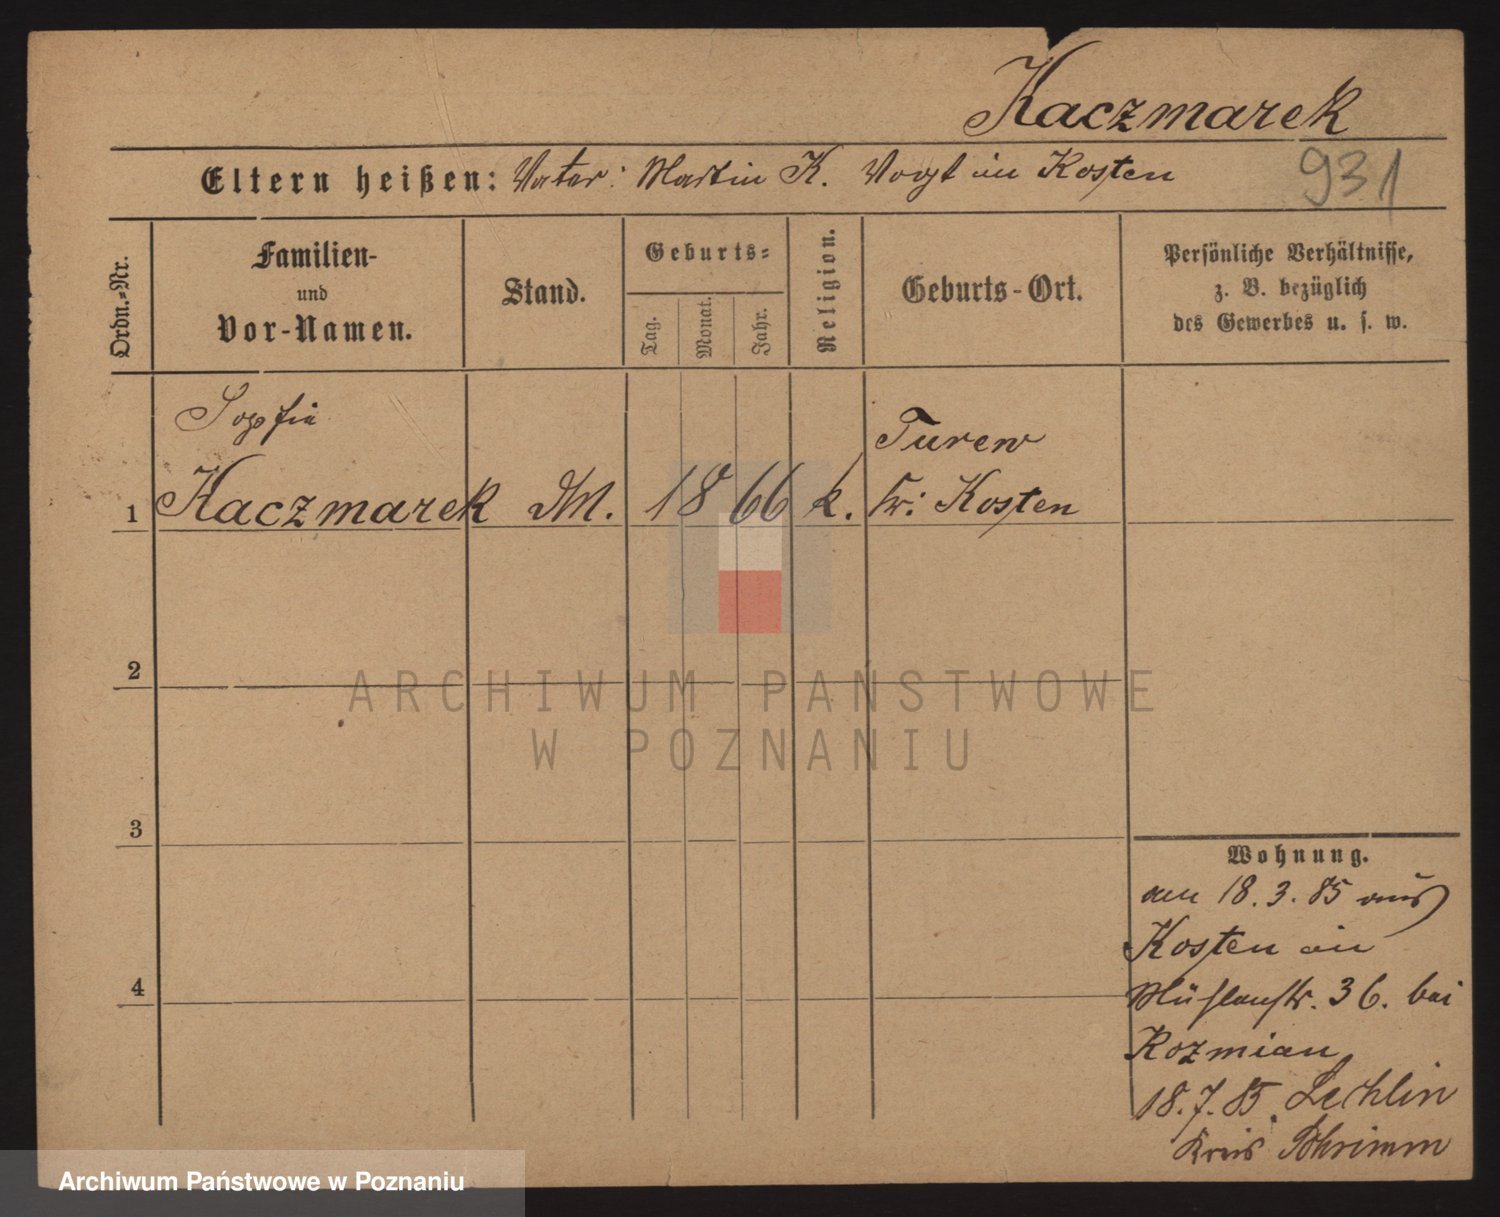 Kaczmarek
Eltern heißen: Vater: Martin K. Vogt in Kosten
931
Ordn.=Nr.
Familien-
und
Vor-Namen.
Stand.
Geburts=
Tag.
Monat.
Jahr.
Religion.
Geburts-Ort.
Persönliche Verhältnisse,
z. B. bezüglich
des Gewerbes u. s. w.
Sophie
Turew
1 Kaczmarek DM. 1866 k. Kr: Kosten
2
ARCHIWUM PAŃSTWOWE
W POZNANIU
3
Wohnung.
am 18.3.85 aus
Kosten in
4
Mühlenstr. 36. bei
Rozmian
18.7.85. Lechlin
Kreis Schrimm
Archiwum Państwowe w Poznaniu